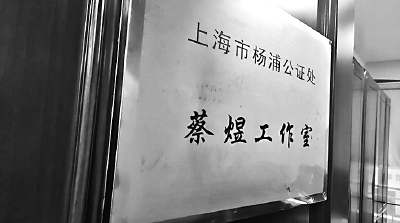 上海市杨浦公证处
蔡煜工作室